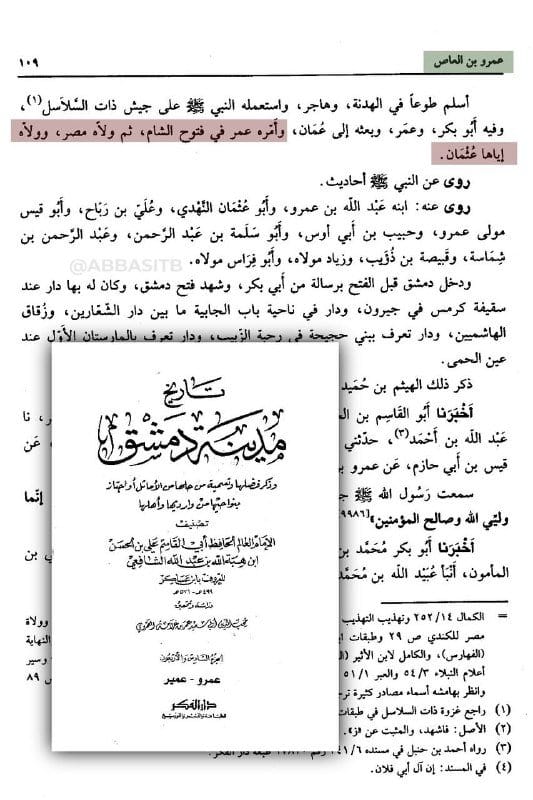 عمرو بن العاص
١٠٩
أسلم طوعاً في الهدنة، وهاجر، واستعمله النبي ﷺ على جيش ذات السلاسل(١)،
وفيه أَبُو بكر، وعمَر، وبعثه إلى عُمان، وأمّره عمر في فتوح الشام، ثم ولاه مصر، وولاه
إياها عُثْمَان.
روى عن النبي ﷺ أحاديث.
روى عنه: ابنه عَبْد اللّه بن عمرو، وأَبُو عُثْمَان النَّهْدي، وعُلَيّ بن رَبَاح، وأَبُو قيس
مولى عمرو، وحبيب بن أَبي أوس، وأَبُو سَلَمة بن عَبْد الرحمن، وعَبْد الرَّحمن بن
شِمَاسة، وقَبيصة بن ذُؤيب، وزياد مولاه، وأَبُو فِرَاس مولاه.
@ABBASITB
ودخل دمشق قبل الفتح برسالة من أَبي بكر، وشهد فتح دمشق، وكان له بها دار عند
سقيفة كرمس في جيرون، ودار في ناحية باب الجابية ما بين دار الشَّعّارين، وزُقاق
الهاشميين، ودار تعرف ببني حجيحة في رحبة الزَّبيب، ودار تعرف بالمارستان الأَوّل عند
عين الحمى.
ذكر ذلك الهيثم بن حُمَيد
أَخْبَرَنا أَبُو القاسم بن
نا
عَبْد اللّه بن أَحْمَد(٣)، حدّثني
عَن
قيس بن أَبي حازم، عَن عمرو بن
سمعت رَسُول اللّه ﷺ
إنّما
وليّي الله وصالح المؤمنين»[٩٩٨٦]
أَخْبَرَنَا أَبُو بكر مُحَمَّد بن
بن
المأمون، أَنْبَأ عُبَيْد اللّه بن مُحَمَّد
تاريخ
مدينة دمشق
وذكر فضلها وتسمية من حلها من الأماثل أو اجتاز
بنواحيها من وارديها وأهلها
تصنيف
الإمام العالم الحافظ أبي القاسم علي بن الحسن
ابن هبة الله بن عبد الله الشافعي
المعروف بابن عساكر
٤٩٩هـ - ٥٧١هـ
دراسة وتحقيق
محب الدين أبي سعيد عمر بن غرامة العمروي
الجزء السادس والأربعون
عمرو - عمير
دار الفكر
للطباعة والنشر والتوزيع
= الكمال ٢٥٢/١٤ وتهذيب التهذيب
وولاة
مصر للكندي ص ٢٩ وطبقات
النهاية
(الفهارس)، والكامل لابن الأثير
وسير
أعلام النبلاء ٥٤/٣ والعبر ٥١/١
ص ٨٩
وانظر بهامشه أسماء مصادر كثيرة
(١) راجع غزوة ذات السلاسل في طبقات
(٢) الأصل: فاشهد، والمثبت عن «ز».
(٣) رواه أحمد بن حنبل في مسنده ٢٤١/٦ رقم طبعة دار الفكر.
(٤) في المسند: إن آل أبي فلان.